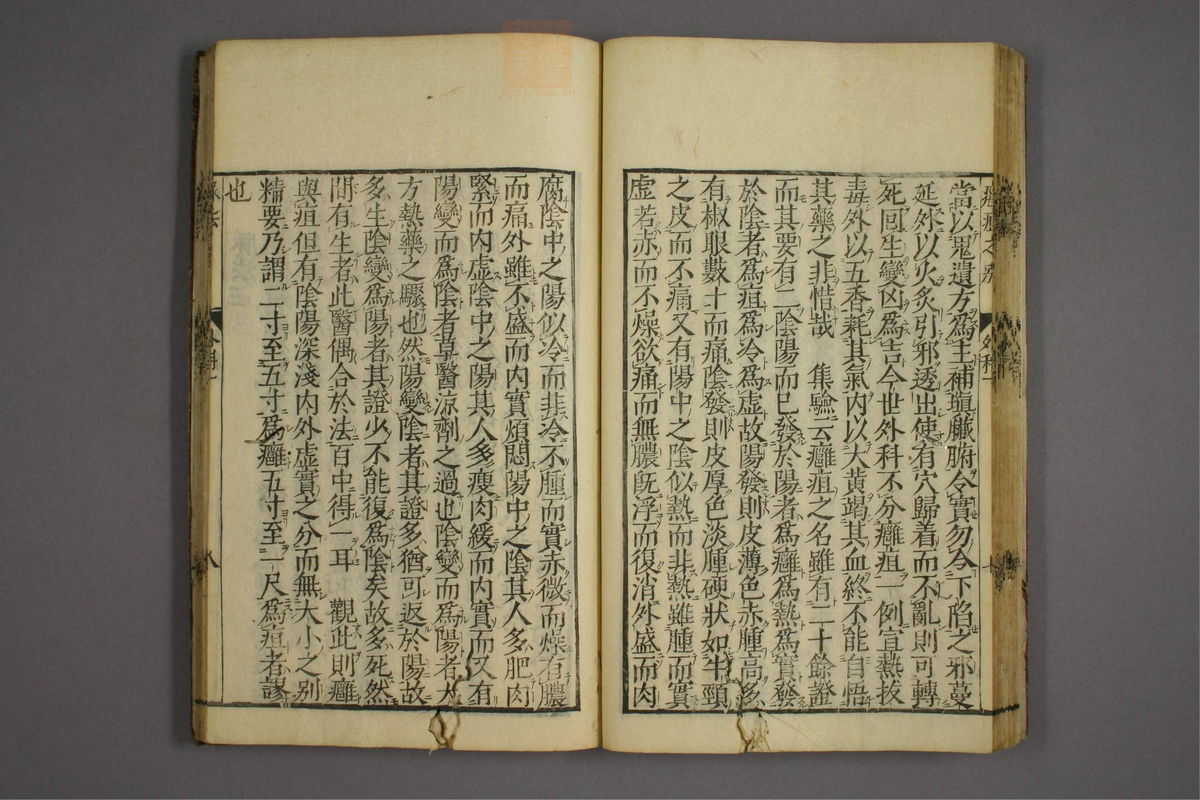 癰疽之別
外科一
七
當以鬼遺方爲主補塡臟腑令實勿令下陷之邪蔓
延外以火炙引邪透出使有穴歸着而不亂則可轉
死回生變凶爲吉今世外科不分癰疽一例宣熱拔
毒外以五香耗其氣内以大黃竭其血終不能自悟
其藥之非惜哉 集驗云癰疽之名雖有二十餘證
而其要有二陰陽而已發於陽者爲癰爲熱爲實發
於陰者爲疽爲冷爲虛故陽發則皮薄色赤腫高多
有椒眼數十而痛陰發則皮厚色淡腫硬狀如牛頸
之皮而不痛又有陽中之陰似熱而非熱雖腫而實
虛若赤而不燥欲痛而無膿旣浮而復消外盛而内
腐陰中之陽似冷而非冷不腫而實赤微而燥有膿
而痛外雖不盛而内實煩悶陽中之陰其人多肥肉
緊而内虛陰中之陽其人多瘦肉緩而内實而又有
陽變而爲陰者草醫涼劑之過也陰變而爲陽者大
方熱藥之驟也然陽變陰者其證多猶可返於陽故
多生陰變爲陽者其證少不能復爲陰矣故多死然
間有生者此醫偶合於法百中得一耳 觀此則癰
與疽但有陰陽深淺内外虛實之分而無大小之別
精要乃謂二寸至五寸爲癰五寸至一尺爲疽者謬
也
外科一
八